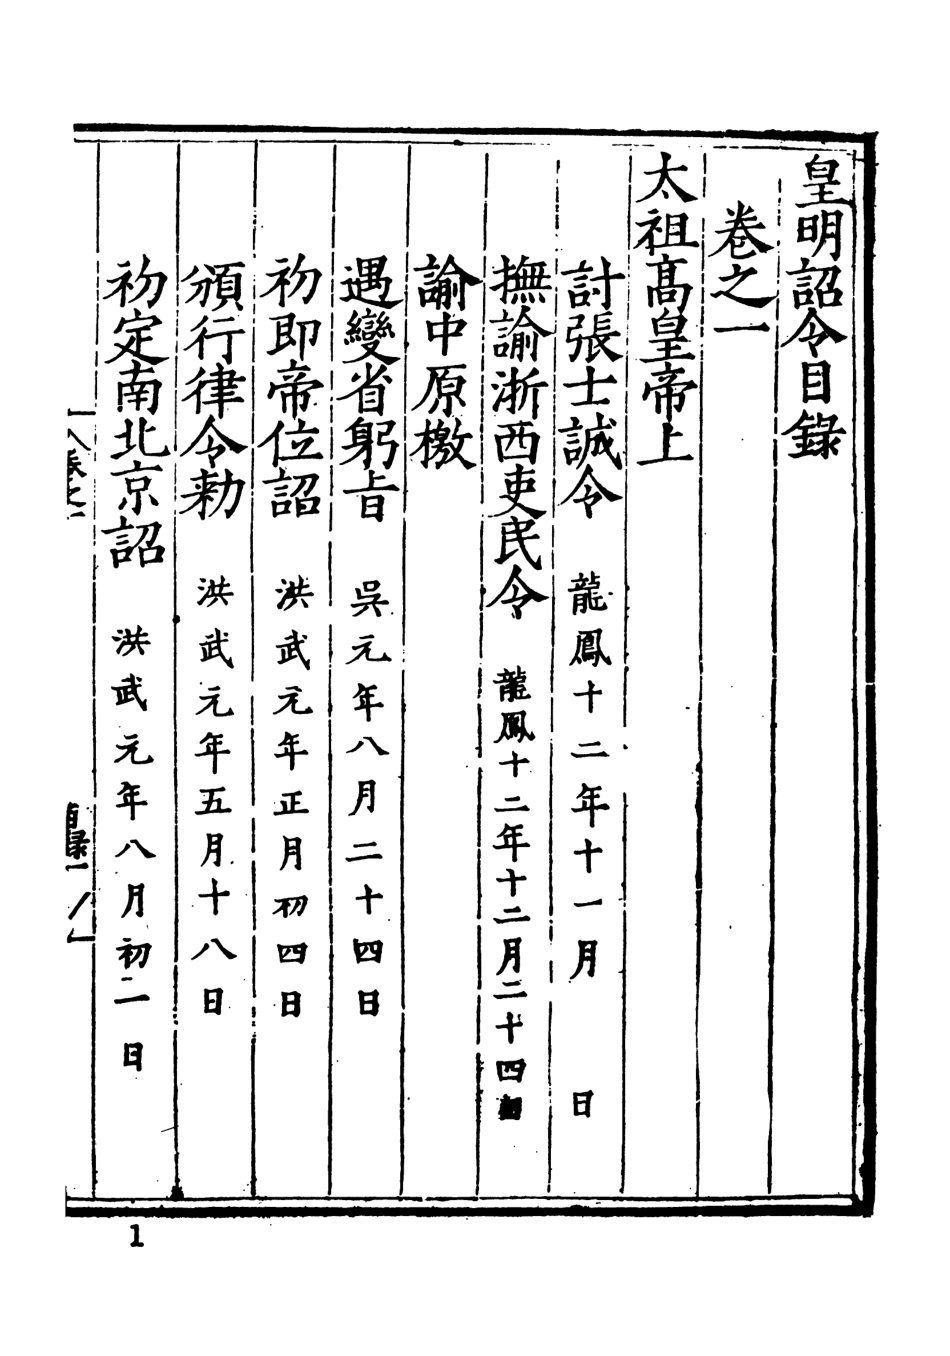 皇明詔令目錄
卷之一
太祖高皇帝上
討張士誠令 龍鳳十二年十一月 日
撫諭浙西吏民令 龍鳳十二年十二月二十四
諭中原檄
遇變省躬旨 吳元年八月二十四日
初即帝位詔 洪武元年正月初四日
頒行律令勑 洪武元年五月十八日
初定南北京詔 洪武元年八月初二日
卷之一
目錄一
1